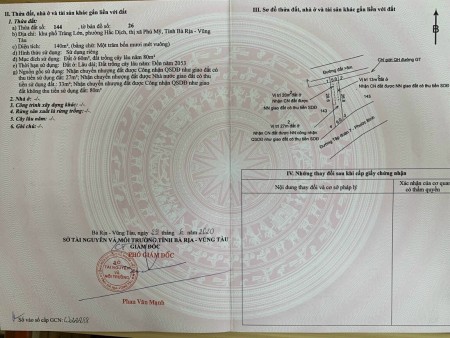 II. Thửa đất, nhà ở và tài sản khác gắn liền với đất
1. Thửa đất:
a) Thửa đất số: 144 , tờ bản đồ số: 26
b) Địa chỉ: khu phố Trảng Lớn, phường Hắc Dịch, thị xã Phú Mỹ, Tỉnh Bà Rịa - Vũng
Tàu.
c) Diện tích: 140m², (bằng chữ: Một trăm bốn mươi mét vuông)
d) Hình thức sử dụng: Sử dụng riêng
đ) Mục đích sử dụng: Đất ở 60m², đất trồng cây lâu năm 80m²
e) Thời hạn sử dụng: Đất ở: Lâu dài; Đất trồng cây lâu năm: Đến năm 2053
g) Nguồn gốc sử dụng: Nhận chuyển nhượng đất được Công nhận QSDĐ như giao đất có
thu tiền sử dụng đất: 27m²; Nhận chuyển nhượng đất được Nhà nước giao đất có
thu tiền sử dụng đất: 33m²; Nhận chuyển nhượng đất được Công nhận QSDĐ như giao
đất không thu tiền sử dụng đất: 80m²
2. Nhà ở: -/-
3. Công trình xây dựng khác: -/-
4. Rừng sản xuất là rừng trồng: -/-
5. Cây lâu năm: -/-
6. Ghi chú: -/-
Bà Rịa - Vũng Tàu, ngày tháng năm 2020
SỞ TÀI NGUYÊN VÀ MÔI TRƯỜNG TỈNH BÀ RỊA - VŨNG TÀU
GIÁM ĐỐC
PHÓ GIÁM ĐỐC
SỞ
TÀI NGUYÊN
VÀ
MÔI TRƯỜNG
Phan Văn Mạnh
Số vào sổ cấp GCN:
III. Sơ đồ thửa đất, nhà ở và tài sản khác gắn liền với đất
B
Đường đất
Chỉ giới QH đường GT
Vị trí 20m² đất ở
Nhận CN đất được
NN giao đất có thu tiền SDĐ
Vị trí 13m² đất ở
Nhận CN đất được
NN giao đất có thu tiền SDĐ
143
145
Vị trí 27m² đất ở
Nhận CN đất được NN công nhận
QSDĐ như giao đất có thu tiền SDĐ
Đường Tập Đoàn 7 - Phước Bình
IV. Những thay đổi sau khi cấp giấy chứng nhận
Nội dung thay đổi và cơ sở pháp lý
Xác nhận của cơ quan
có thẩm quyền